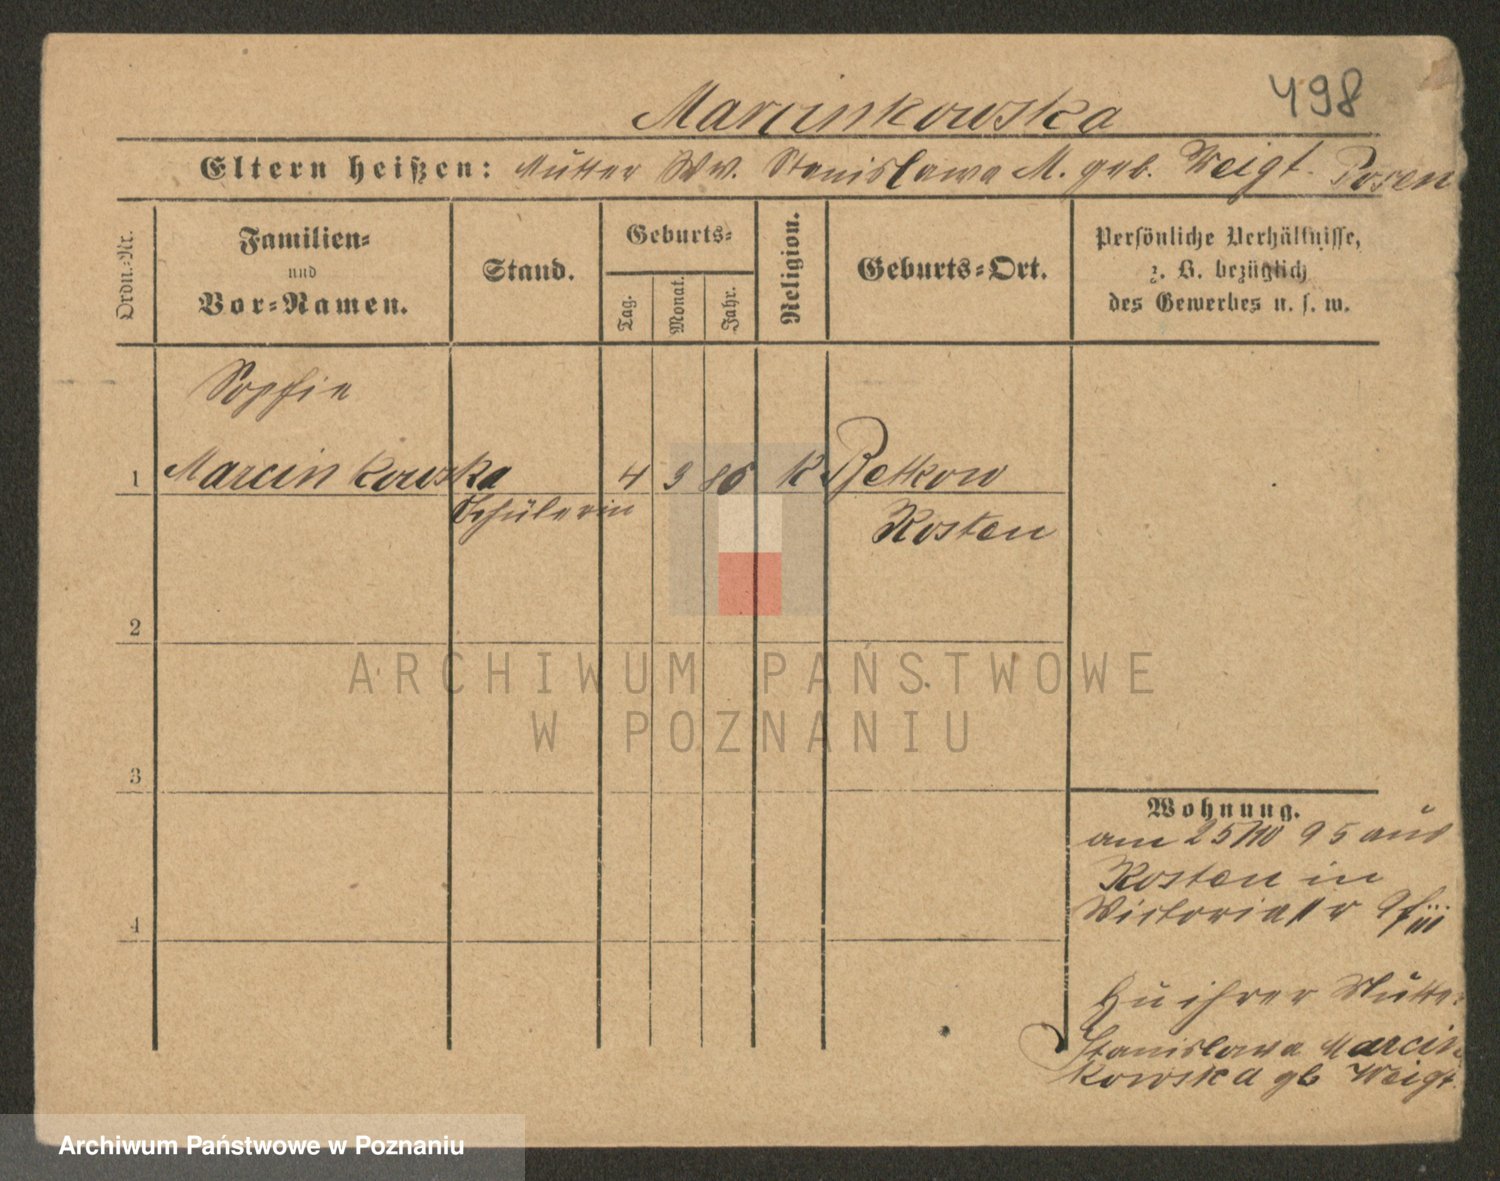 498
Marcinkowska
Eltern heißen: Mutter Ww. Stanislawa M. geb. Weigt. Posen
Ordn.-Nr.
Familien-
und
Vor-Namen.
Stand.
Geburts-
Tag.
Monat.
Jahr.
Religion.
Geburts-Ort.
Persönliche Verhältnisse,
z. B. bezüglich
des Gewerbes u. s. w.
Sophie
1 Marcinkowska 4 9 86 K Betkow
Schülerin Kosten
2
3
4
Wohnung.
am 25/10 95 aus
Kosten in
Victoriastr
Zu ihrer Mutter
Stanislawa Marcin
kowska gb Weigt.
ARCHIWUM PAŃSTWOWE
W POZNANIU
Archiwum Państwowe w Poznaniu